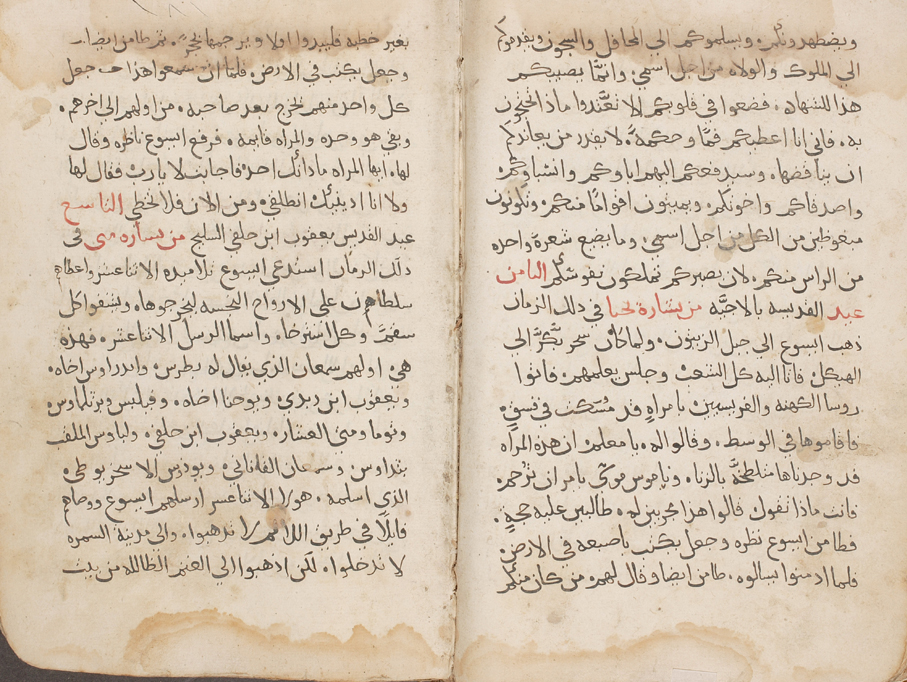 ويضطهدونكم. ويسلموكم الي المحافل والسجون ويقدموكم
الي الملوك والولاه من اجل اسمي. وانما يصيبكم
هذا للشهاده. فضعوا في قلوبكم الا تعتدوا ماذا تحتجون
به. فاني انا اعطيكم فمًا وحكمةً. لا يقدر من يعاندكم
ان يناقضها. وسيدفعكم اليهم اباوكم وانسباوكم
واصدقاكم واخوتكم. ويميتون اقوامًا منكم. وتكونون
مبغوظين من الكل من اجل اسمي. وما يضيع شعرة واحده
من الراس منكم. لان بصبركم تملكون نفوسكم الثامن
عيد القديسه بالاجيه من بشارة يحيا في ذلك الزمان
ذهب ايسوع الي جبل الزيتون. ولما كان سحر بكَّر الي
الهيكل. فاتا اليه كل الشعب وجلس يعلمهم. فاتوا
روسا الكهنه والفريسيين بامراهٍ قد مُسكت في فسقٍ.
فاقاموها في الوسط. وقالوا له. يا معلم. ان هذه المراه
قد وجدناها متلطخةً بالزنا. وناموس موسى يامر ان تُرجم.
فانت ماذا تقول قالوا هذا مجربين له. طالبين عليه حجةٍ.
فطامن ايسوع نظره وجعل يكتب باصبعه في الارض.
فلما ادمنوا يسالوه. طامن ايضا وقال لهم. من كان منكم
بغير خطيه فليبدوا اولا ويرجمها بحجرٍ. ثم طامن ايضا
وجعل يكتب في الارض. فلما ان سمعوا هذا جعل
كل واحد منهم يخرج بعد صاحبه. من اولهم الي اخرهم.
وبقي هو وحده والمراه قايمه. فرفع ايسوع ناظره وقال
لها. ايها المراه ماذا احد فاجابت لا يا رب فقال لها
ولا انا ادينك انطلقي. ومن الان فلا تخطي التاسع
عيد القديس يعقوب ابن حلفي السليح من بشارة متى في
ذلك الزمان استدعي ايسوع تلاميذه الاثنا عشر واعطاهم
سلطانهم على الارواح النجسه ليخرجوها. ويشفوا كل
سقمٍ وكل استرخا. واسما الرسل الاثنا عشر. فهذه
هي. اولهم سمعان الذي يقال له بطرس. واندراوس اخاه.
ويعقوب ابن زبدي. ويوحنا اخاه. وفيلبس وبرتلماوس.
وتوما ومتى العشار. ويعقوب ابن حلفي. ولباوس الملقب
بتداوس. وسمعان القاناني. ويودس الاسخريوطي.
الذي اسلمه. هولا الاثنا عشر ارسلهم ايسوع ووصاهم
قايلًا في طريق الامم لا تذهبوا. والى مدينة السمره
لا تدخلوا. لكن اذهبوا الي الغنم الظالله من بيت